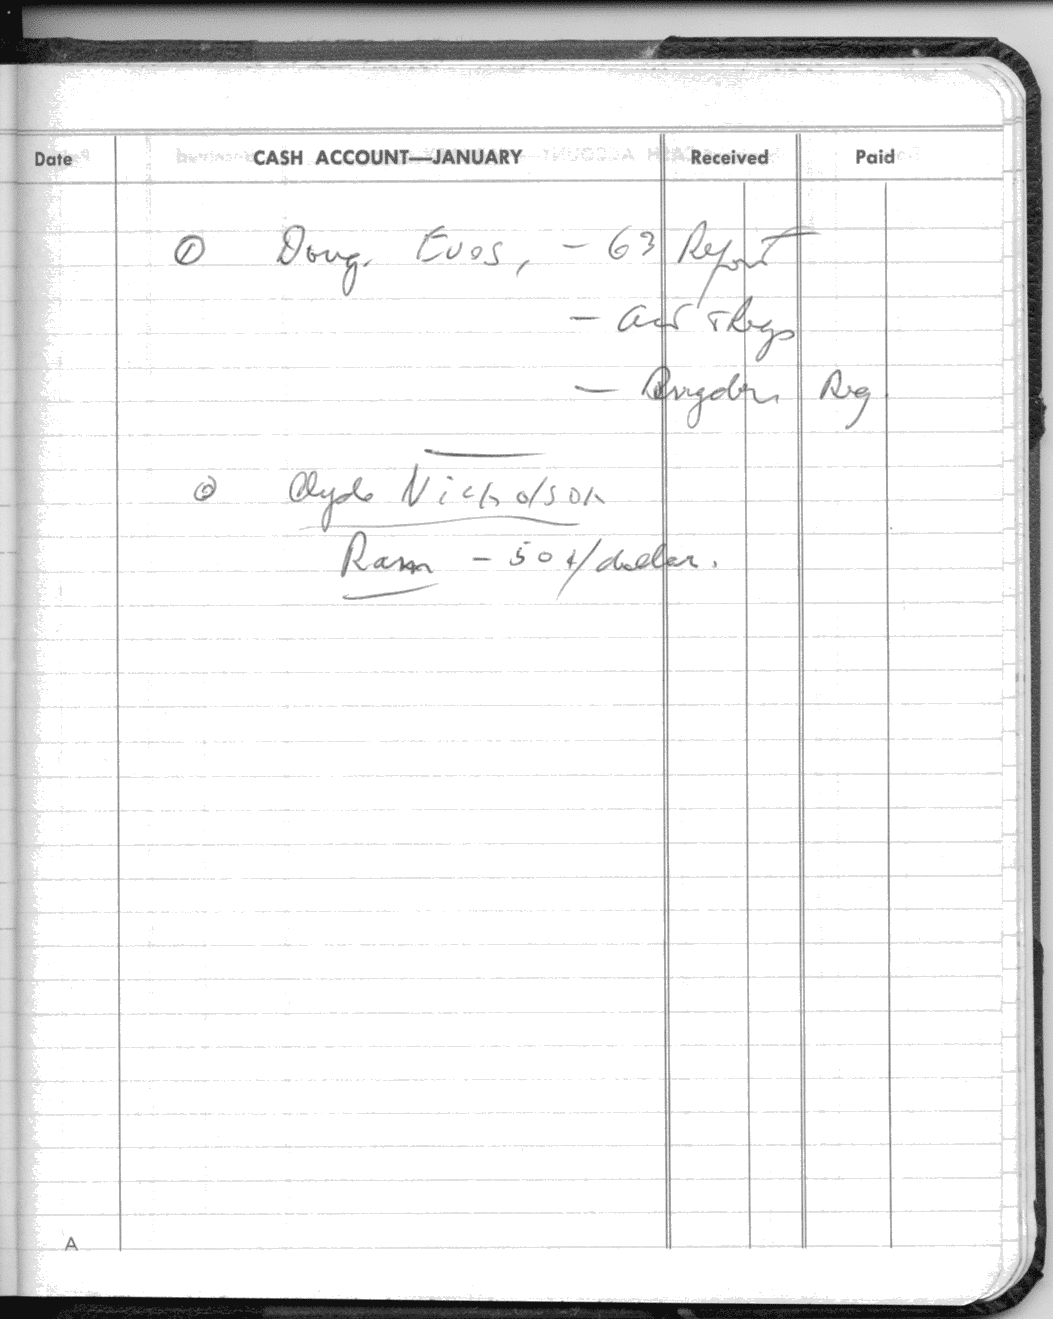 Date CASH ACCOUNT—JANUARY Received Paid
① Doug. Evos, – 63 Report
– Act & Regs
– Reg
② Clyde Nicholson
Ram – 50¢/dollar.
A